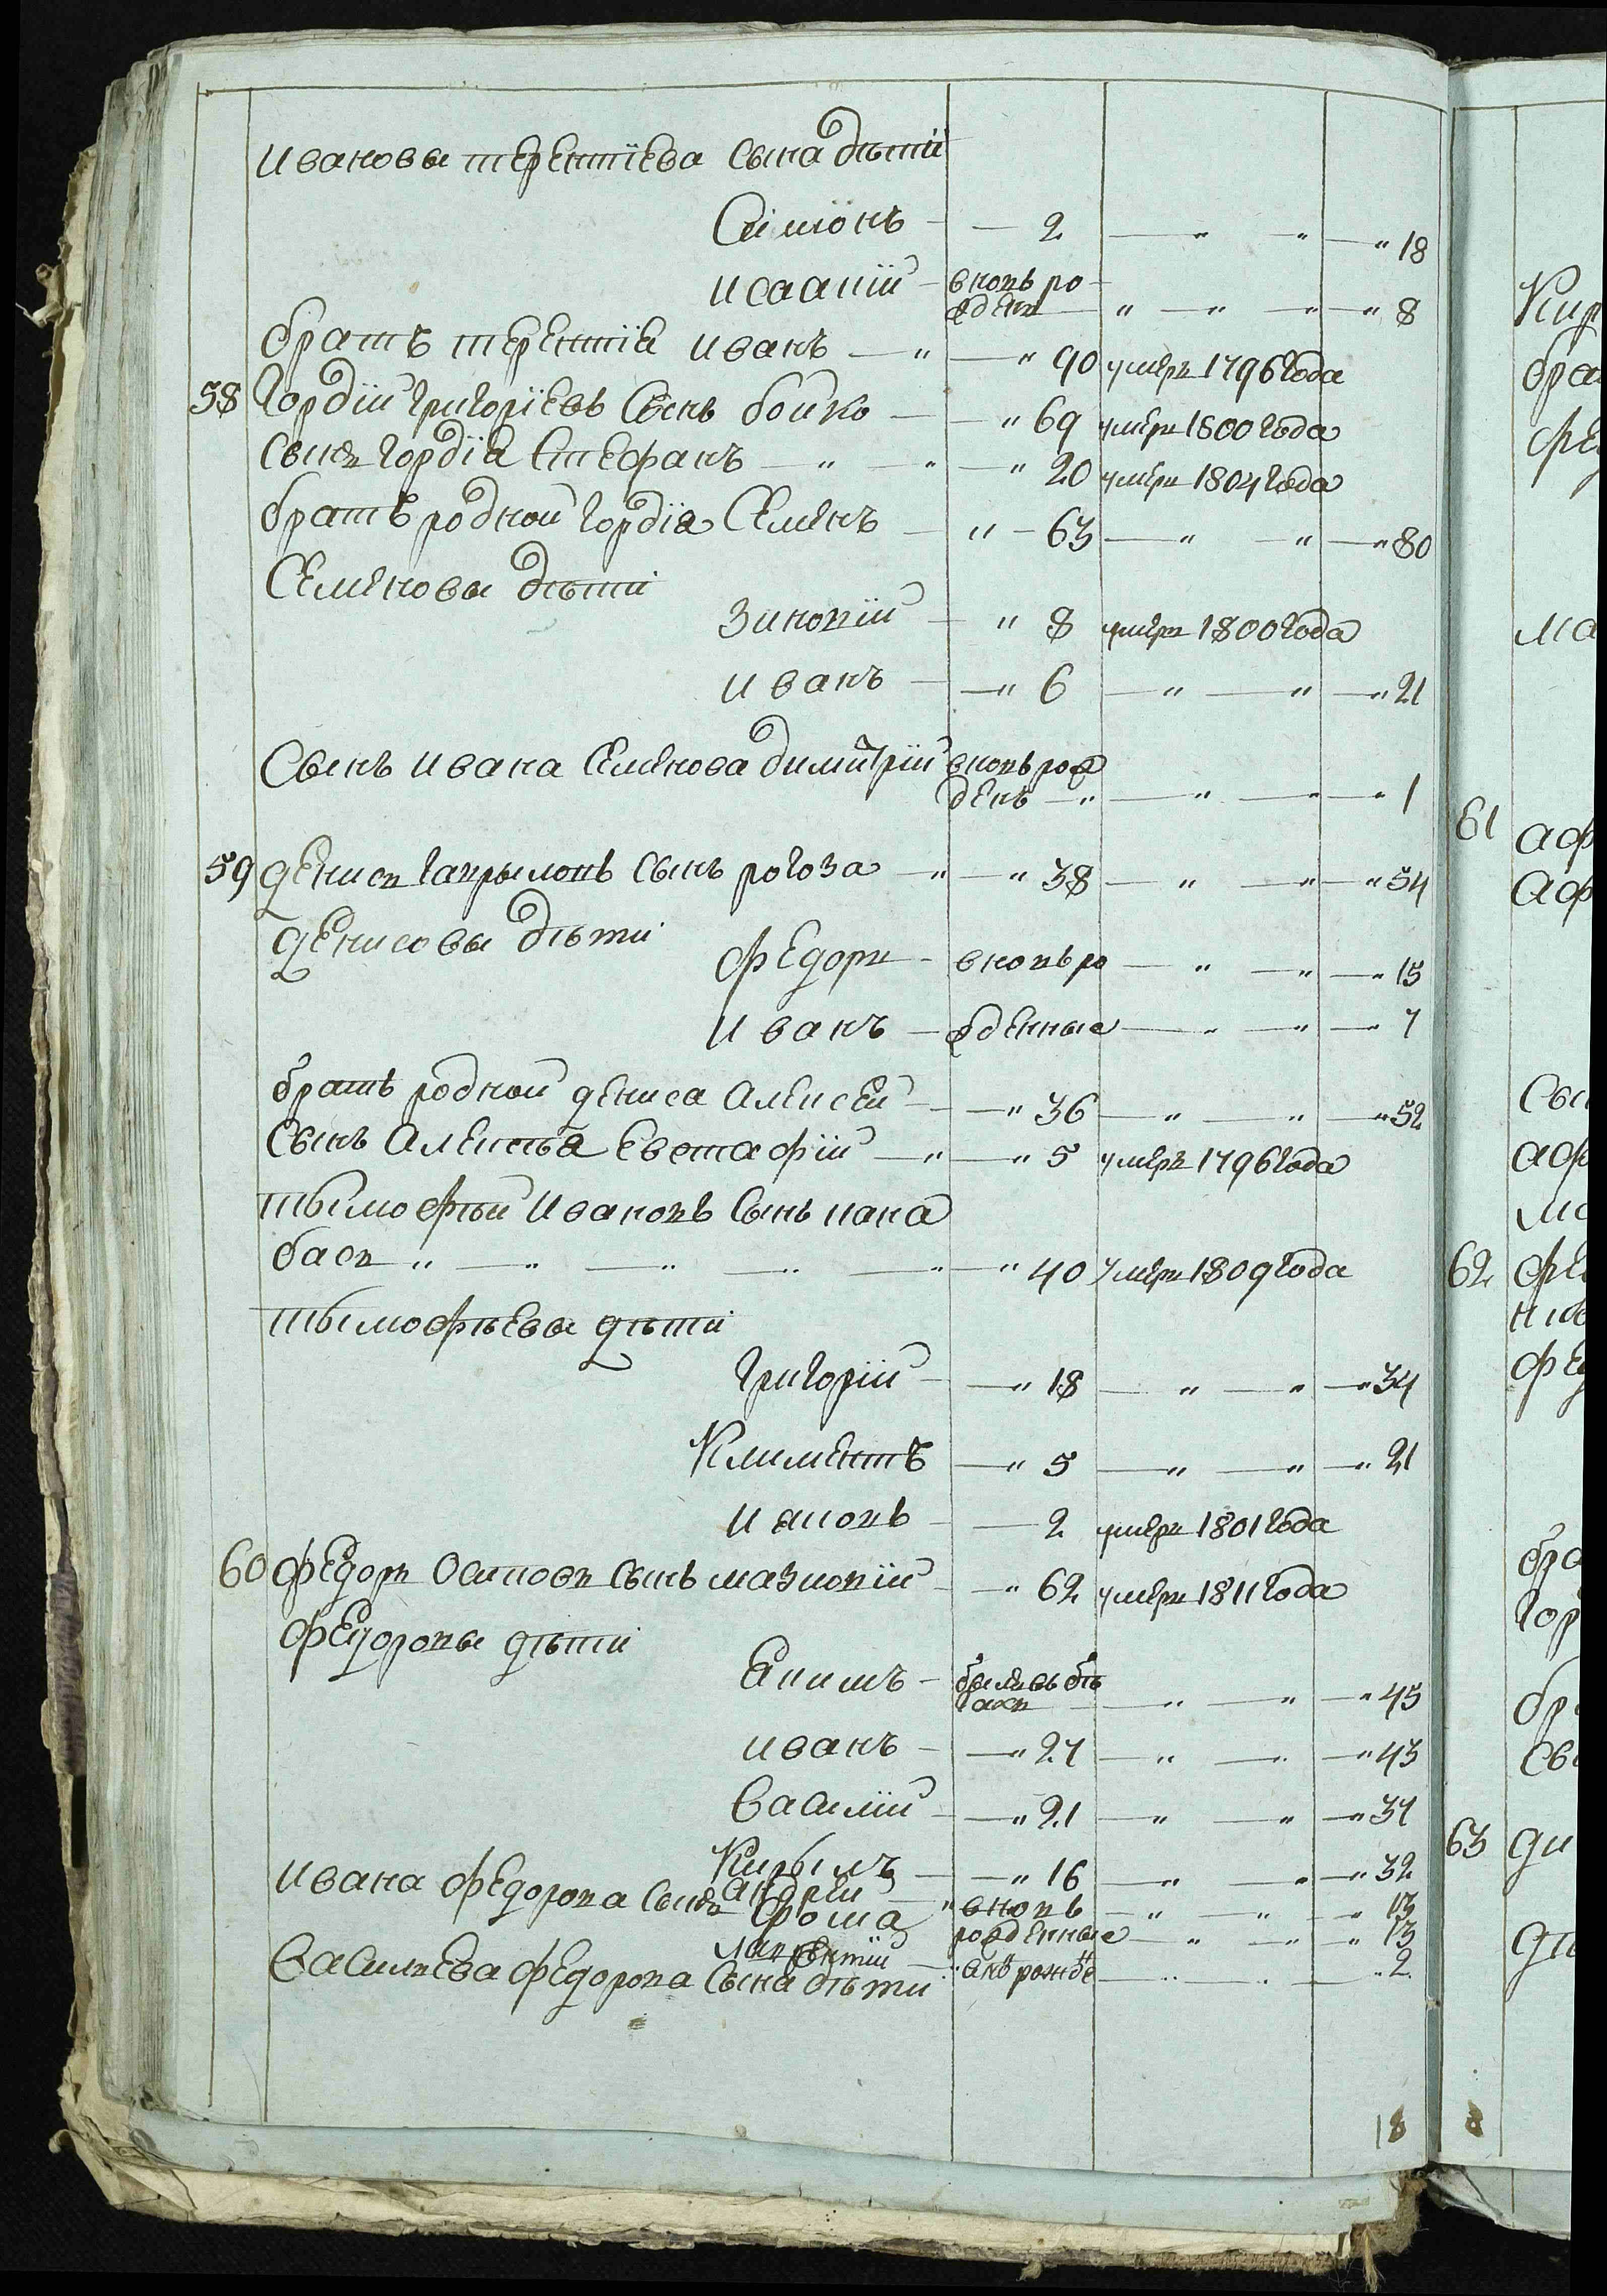 Ивановы терентїева сына дѣти
Сімїонъ — 2 — „ — „ — „ 18
Исаакїй — вновь ро
жденъ — „ — „ — „ — „ 8
братъ терентїя иванъ — „ — „ 90 умеръ 1796 года
58 Гордїй григорїевъ сынъ бойко — „ 69 умеръ 1800 года
сынъ гордїя Стефанъ — „ — „ — „ 20 умеръ 1804 года
братъ родной гордїя Семенъ — „ — 63 — „ — „ — „ 80
Семеновы дѣти
Зиновїй — „ 8 умеръ 1800 года
иванъ — „ 6 — „ — „ — „ 21
Сынъ ивана Семенова димитрїй вновь рож
денъ — „ — „ — „ — „ 1
59 денисъ гаврыловъ сынъ рогоза — „ — „ 38 — „ — „ — „ 54
денисовы дѣти
федоръ — вновь ро — „ — „ — „ 15
иванъ — жденные — „ — „ — „ 7
братъ родной дениса алексей — „ 36 — „ — „ — „ 52
сынъ алексѣя Евстафїй — „ — „ 5 умеръ 1796 года
тымофѣй ивановъ сынъ пана
басъ „ — „ — „ — „ — „ — „ 40 умеръ 1809 года
тымофѣевы дѣти
григорїй — „ 18 — „ — „ — „ 34
Климентъ — „ 5 — „ — „ — „ 21
иаковъ — 2 умеръ 1801 года
60 федоръ осиповъ сынъ мазнокїй — „ 62 умеръ 1811 года
федоровы дѣти
Екимъ — былъ въ бѣ
гахъ — „ — „ — „ 45
иванъ — „ 27 — „ — „ — „ 43
василїй — „ 21 — „ — „ — „ 37
Кирылъ — „ 16 — „ — „ — „ 32
ивана федорова сынъ андрей
фома „ вновь — „ — „ — „ 13
рожденные — „ — „ — „ 13
лаврентїй
василїева федорова сына дѣти рожде — „ — „ — „ 2
18
61 аф
62
63 ди
8